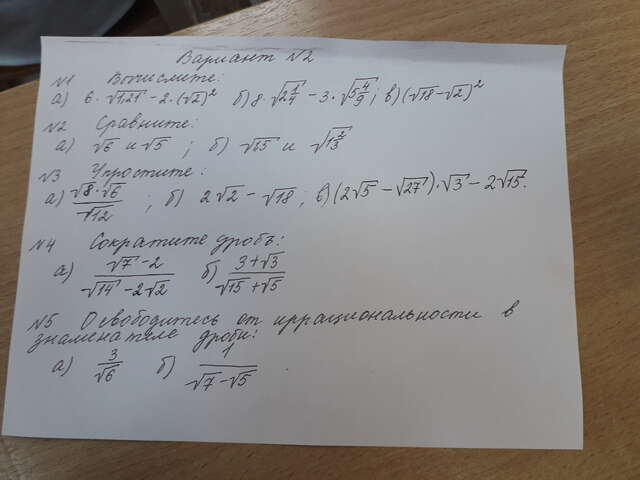 Вариант №2
№1 Вычислите:
а) 6·√121 - 2·(√2)²  б) 8·√(2 1/4) - 3·√(5 4/9); в) (√18-√2)²
№2 Сравните:
а) √6 и √5 ; б) √25 и √13
№3 Упростите:
а) √8·√6/√12 ; б) 2√2 - √18; в) (2√5 - √27)·√3 - 2√15.
№4 Сократите дробь:
а) √7 - 2/√14 - 2√2  б) 3+√3/√15+√5
№5 Освободитесь от иррациональности в
знаменателе дроби:
а) 3/√6  б) /√7-√5 .